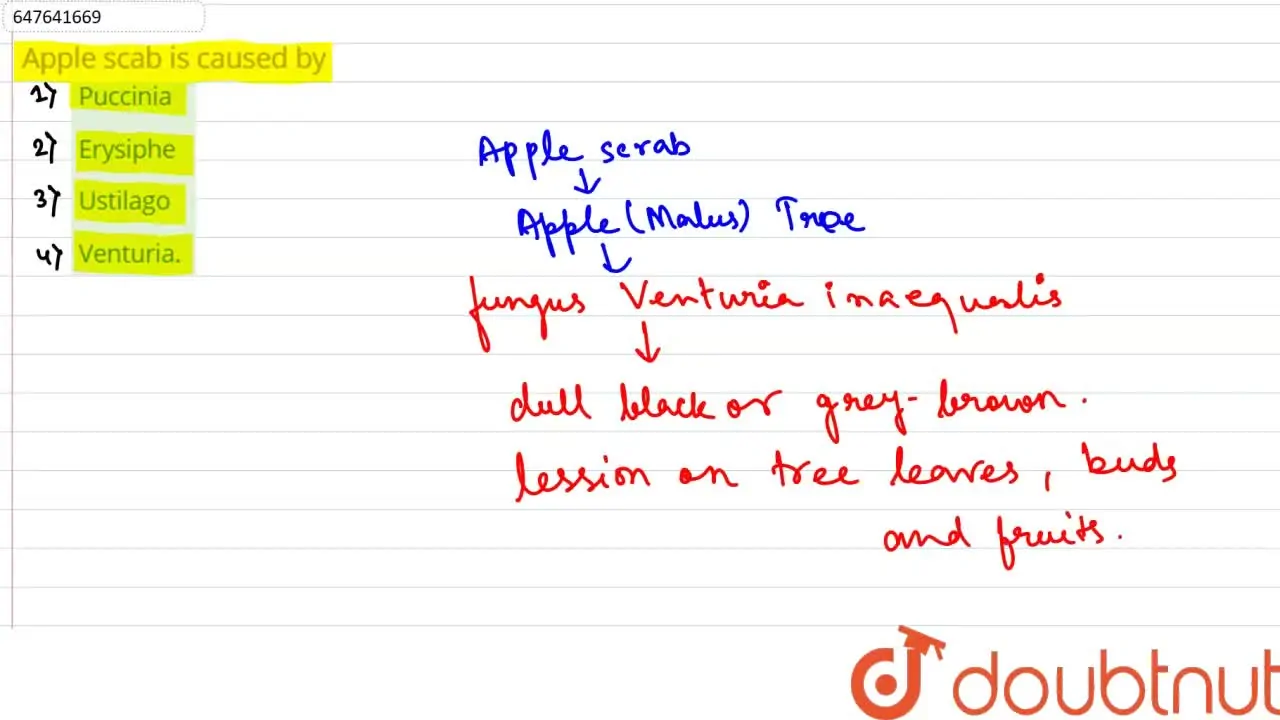 647641669
Apple scab is caused by
1) Puccinia
2) Erysiphe
3) Ustilago
4) Venturia.
Apple scrab
↓
Apple (Malus) Tree
↓
fungus Venturia inaequalis
↓
dull black or grey-brown.
lession on tree leaves, buds
and fruits.
doubtnut